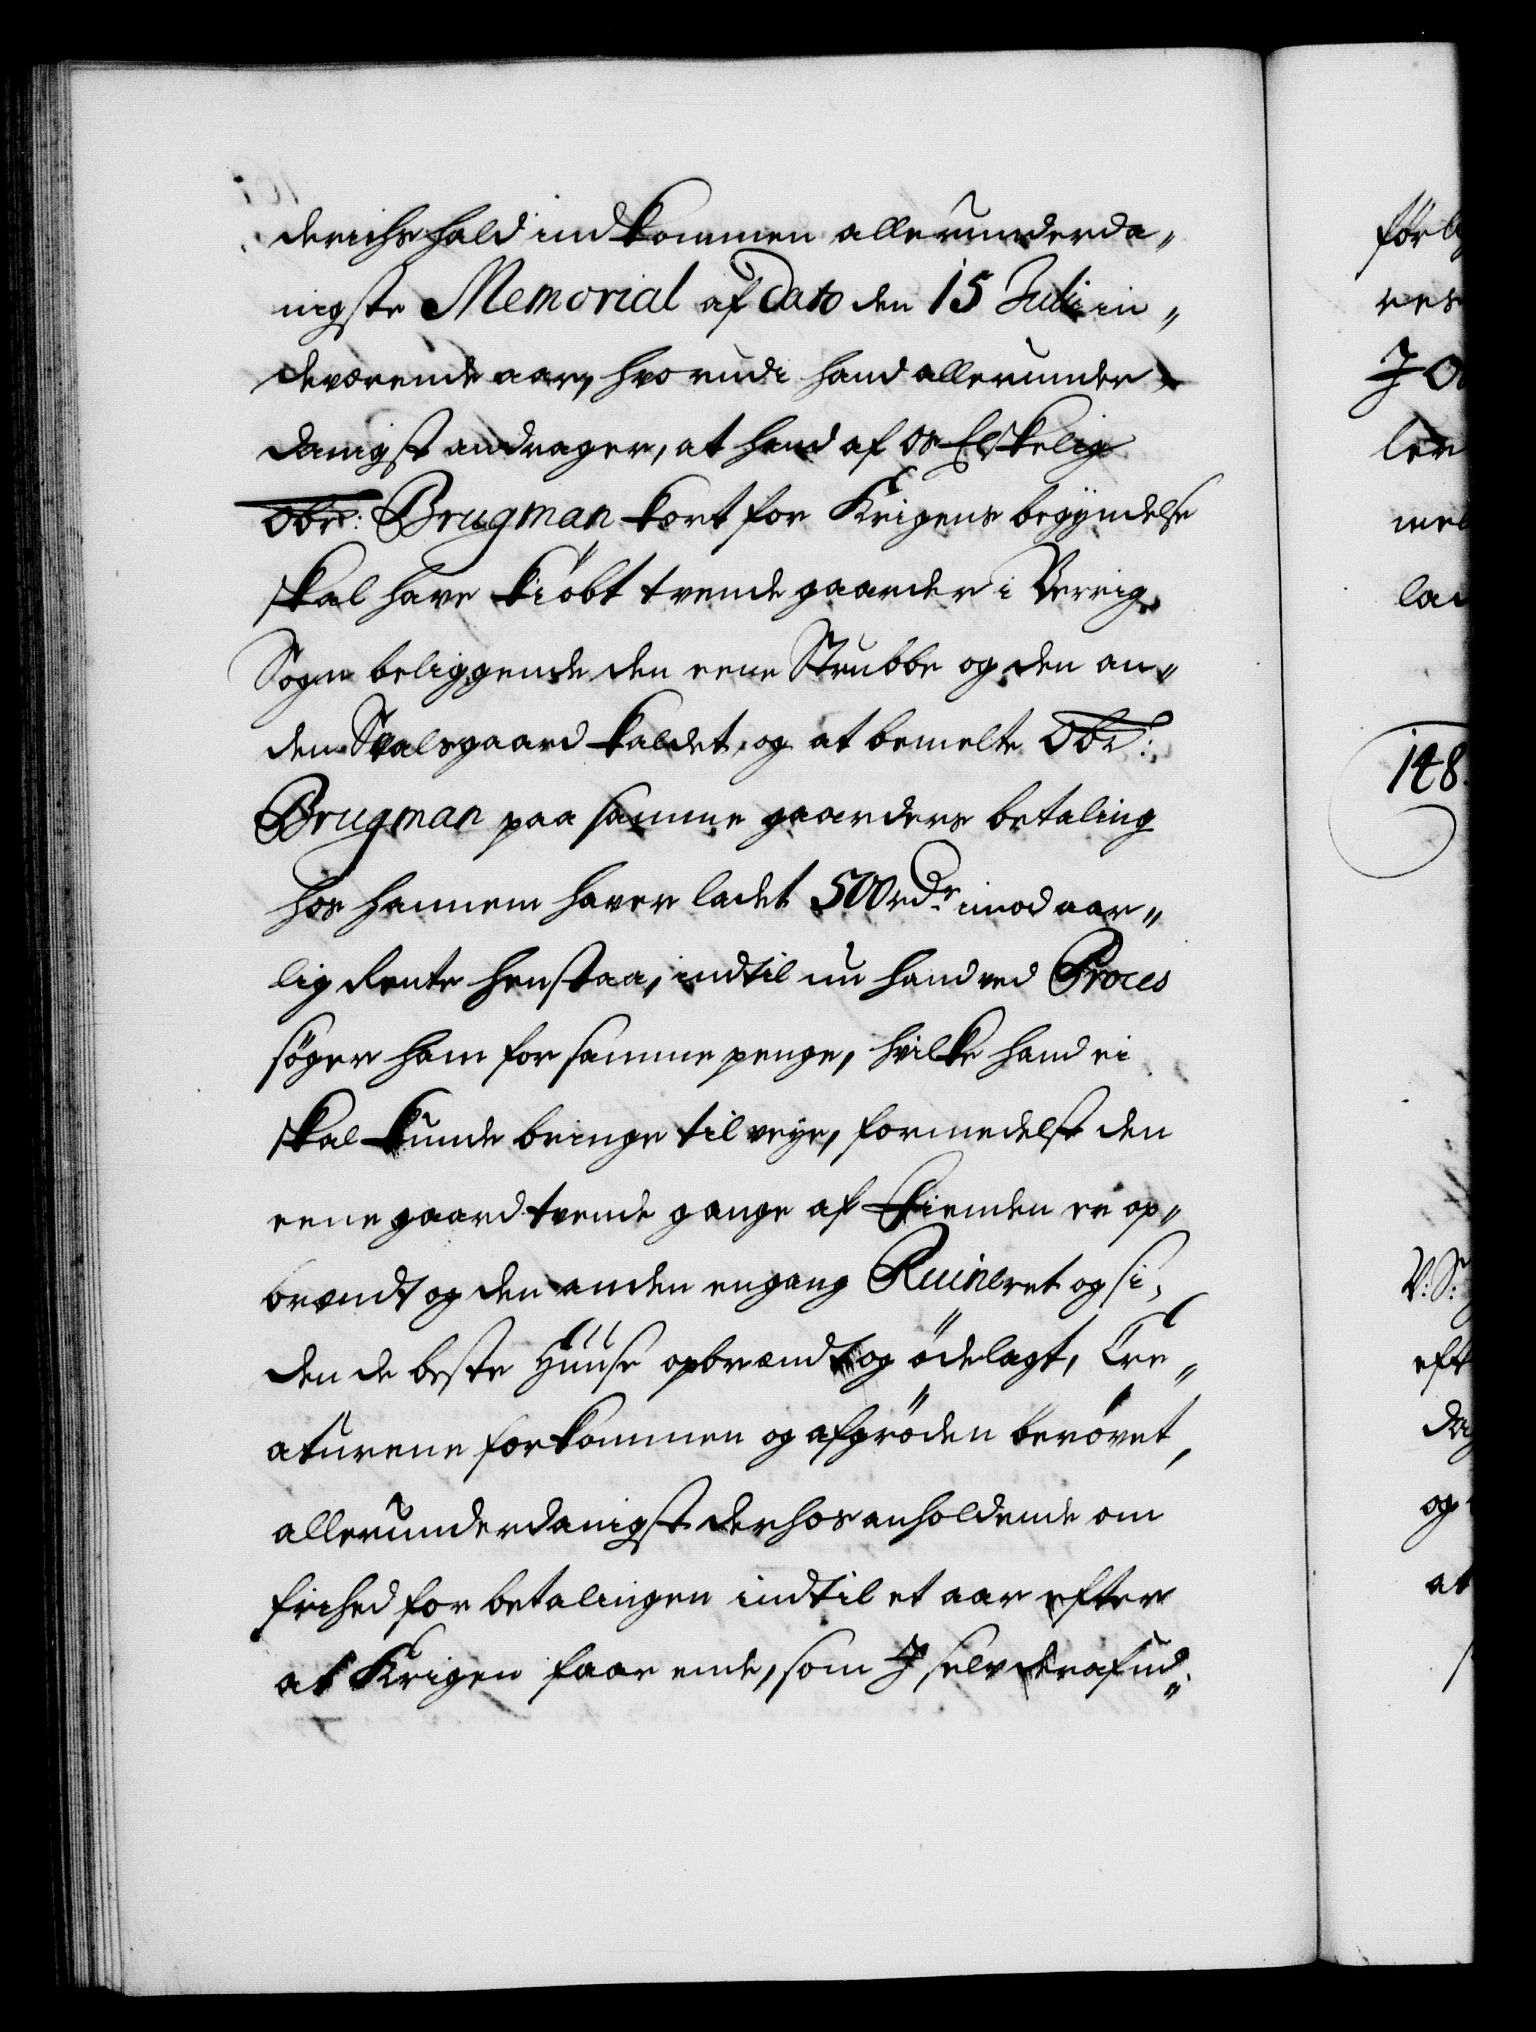 derichshald indkommen allerunderda„
nigste Memorial af Dato den 15 Julii in„
deværende aar, hvorudi hand allerunder„
danigst andrager, at hand af Os Elskelig
Obr: Brugman kort for Krigens begyndelse
skal have kiöbt tvende gaarder i Berrig
Sogn beliggende den eene Strubbe og den an„
den Skalsgaard kaldet, og at bemelte Obr:
Brugman paa samme gaarders betaling
hos hannem haver ladet 500 rdr imod aar„
lig Rente henstaa, indtil nu hand ved Proces
söger ham for samme penge, hvilke hand ei
skal kunde bringe til veye, formedelst den
eene gaard tvende gange af Fienden er op„
brændt og den anden engang Ruineret og si„
den de beste Huuse opbrændt og ödelagt, Cre„
aturene forkommen og afgröden berövet,
allerunderdanigst derhos anholdende om
frihed for betalingen indtil et aar efter
at Krigen faar ende, som I selv deraf vid„
148.
V: S:
eft
og
at